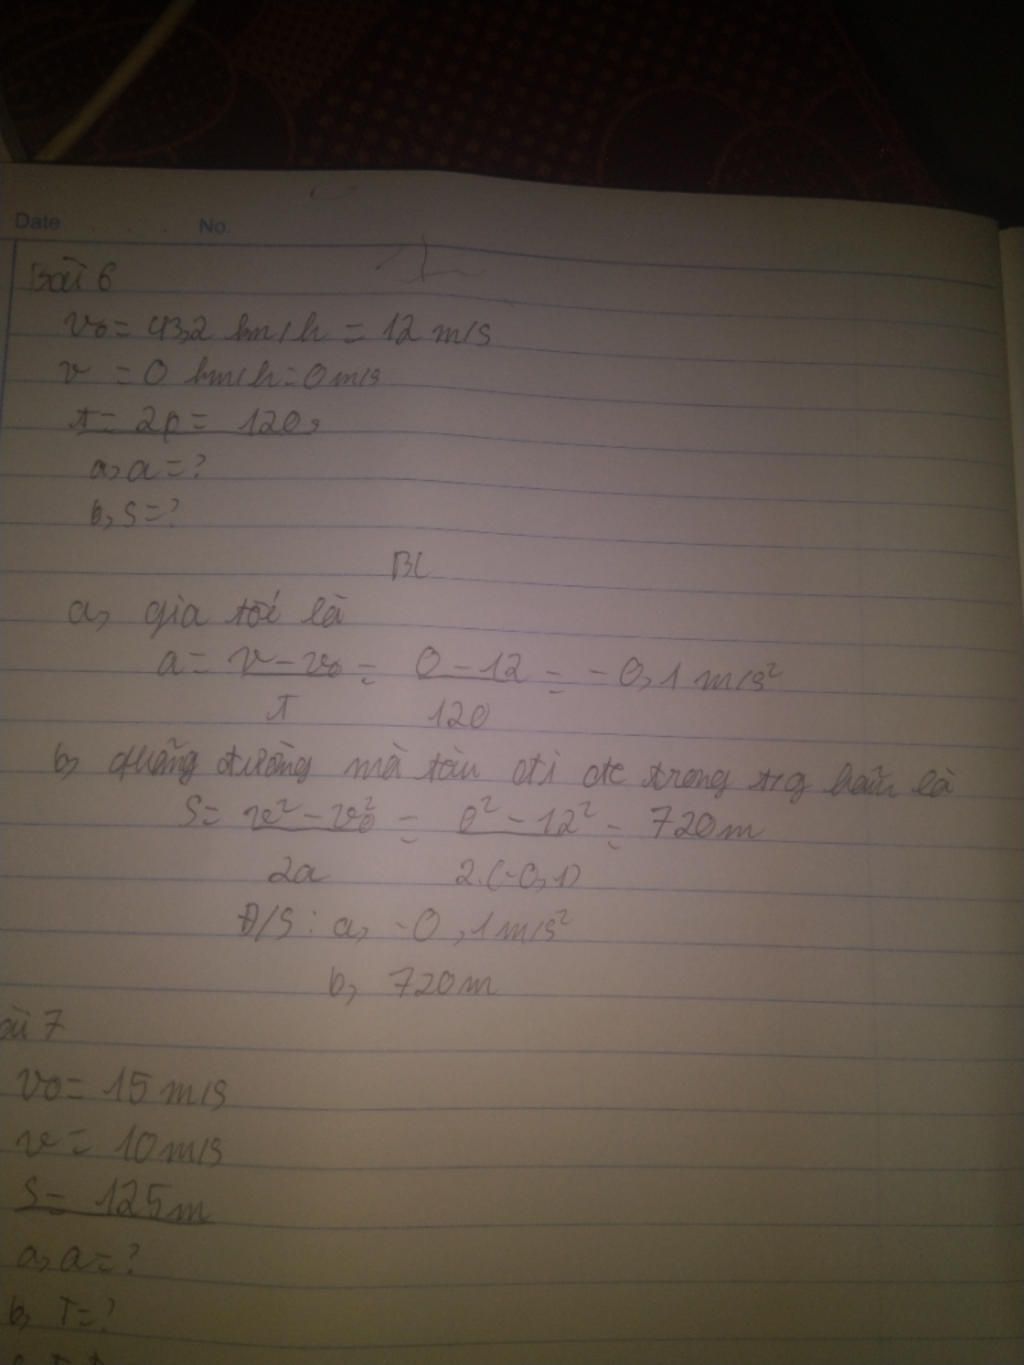 Date No.
Bài 6
v₀ = 43,2 km/h = 12 m/s
v = 0 km/h = 0 m/s
t = 2p = 120s
a, a = ?
b, s = ?
BL
a, gia tốc là
a = (v - v₀)/t = (0 - 12)/120 = -0,1 m/s²
b, quãng đường mà tàu đi đc trong trg hãm là
S = (v² - v₀²)/2a = (0² - 12²)/2.(-0,1) = 720m
Đ/S : a, -0,1 m/s²
b, 720m
ài 7
v₀ = 15 m/s
v = 10 m/s
S = 125m
a, a = ?
b, T = ?